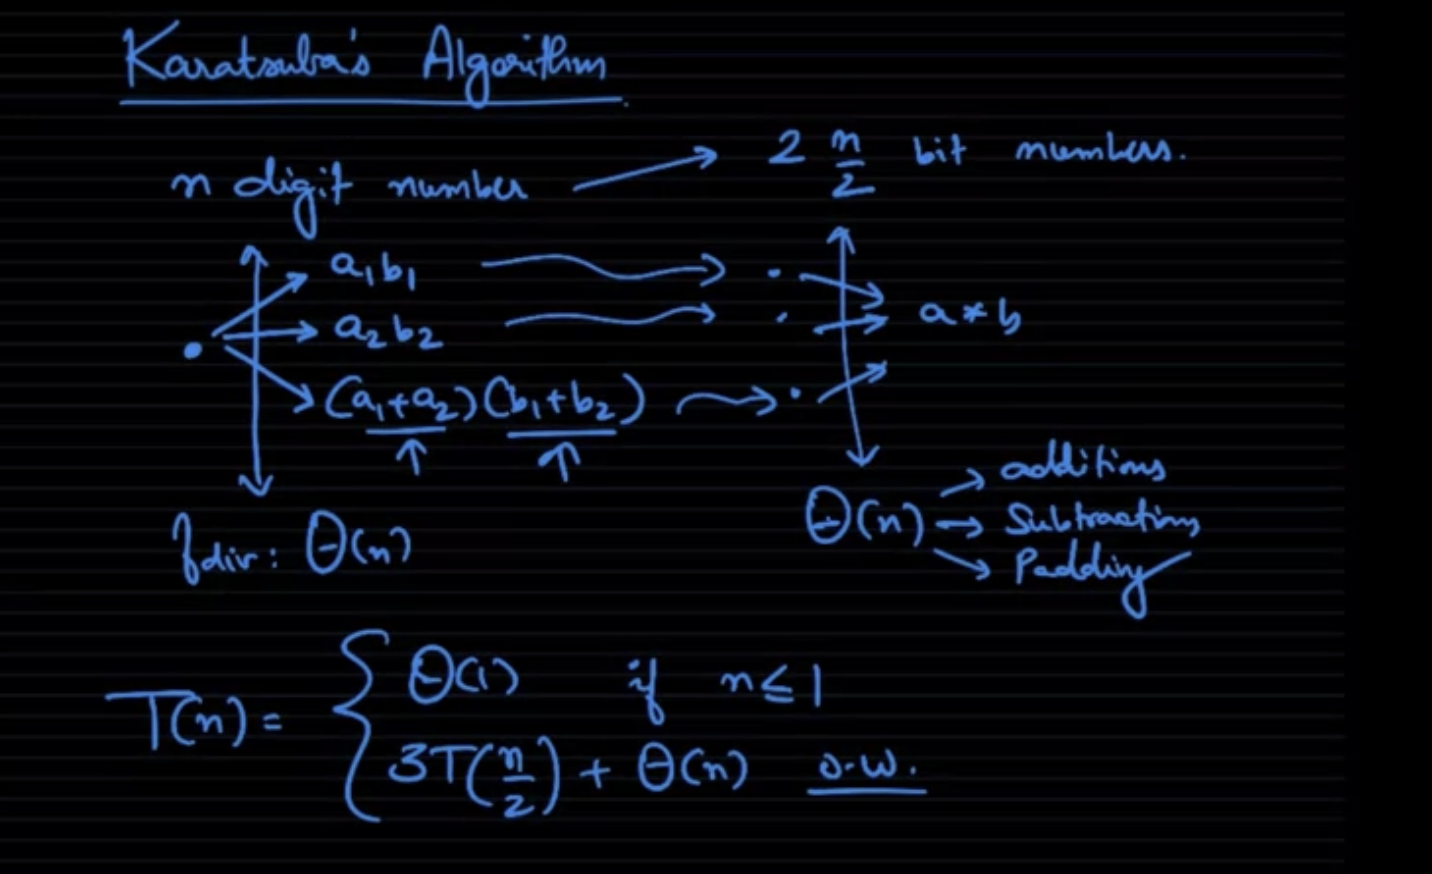 Karatsuba's Algorithm
n digit number → 2 n/2 bit numbers.
a₁b₁
a₂b₂ a * b
(a₁+a₂)(b₁+b₂)
additions
fdiv: Θ(n) Θ(n) → Subtractions
Padding
T(n) = { Θ(1) if n ≤ 1
3T(n/2) + Θ(n) o.w.